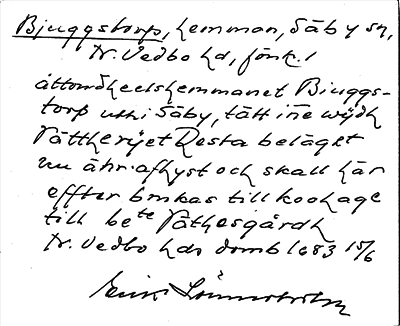 Bjuggstorp, hemman, Säby sn,
N. Vedbo hd, Jönk. l
åttondheelshemmanet Biuggs-
torp uthi Säby, tätt inne widh
Sätthe rijet Resta beläget
nu ähr afhyst och skall här
effter brukas till koohage
till be te Säthesgårdh
N. Vedbo hds domb 1683 15/6